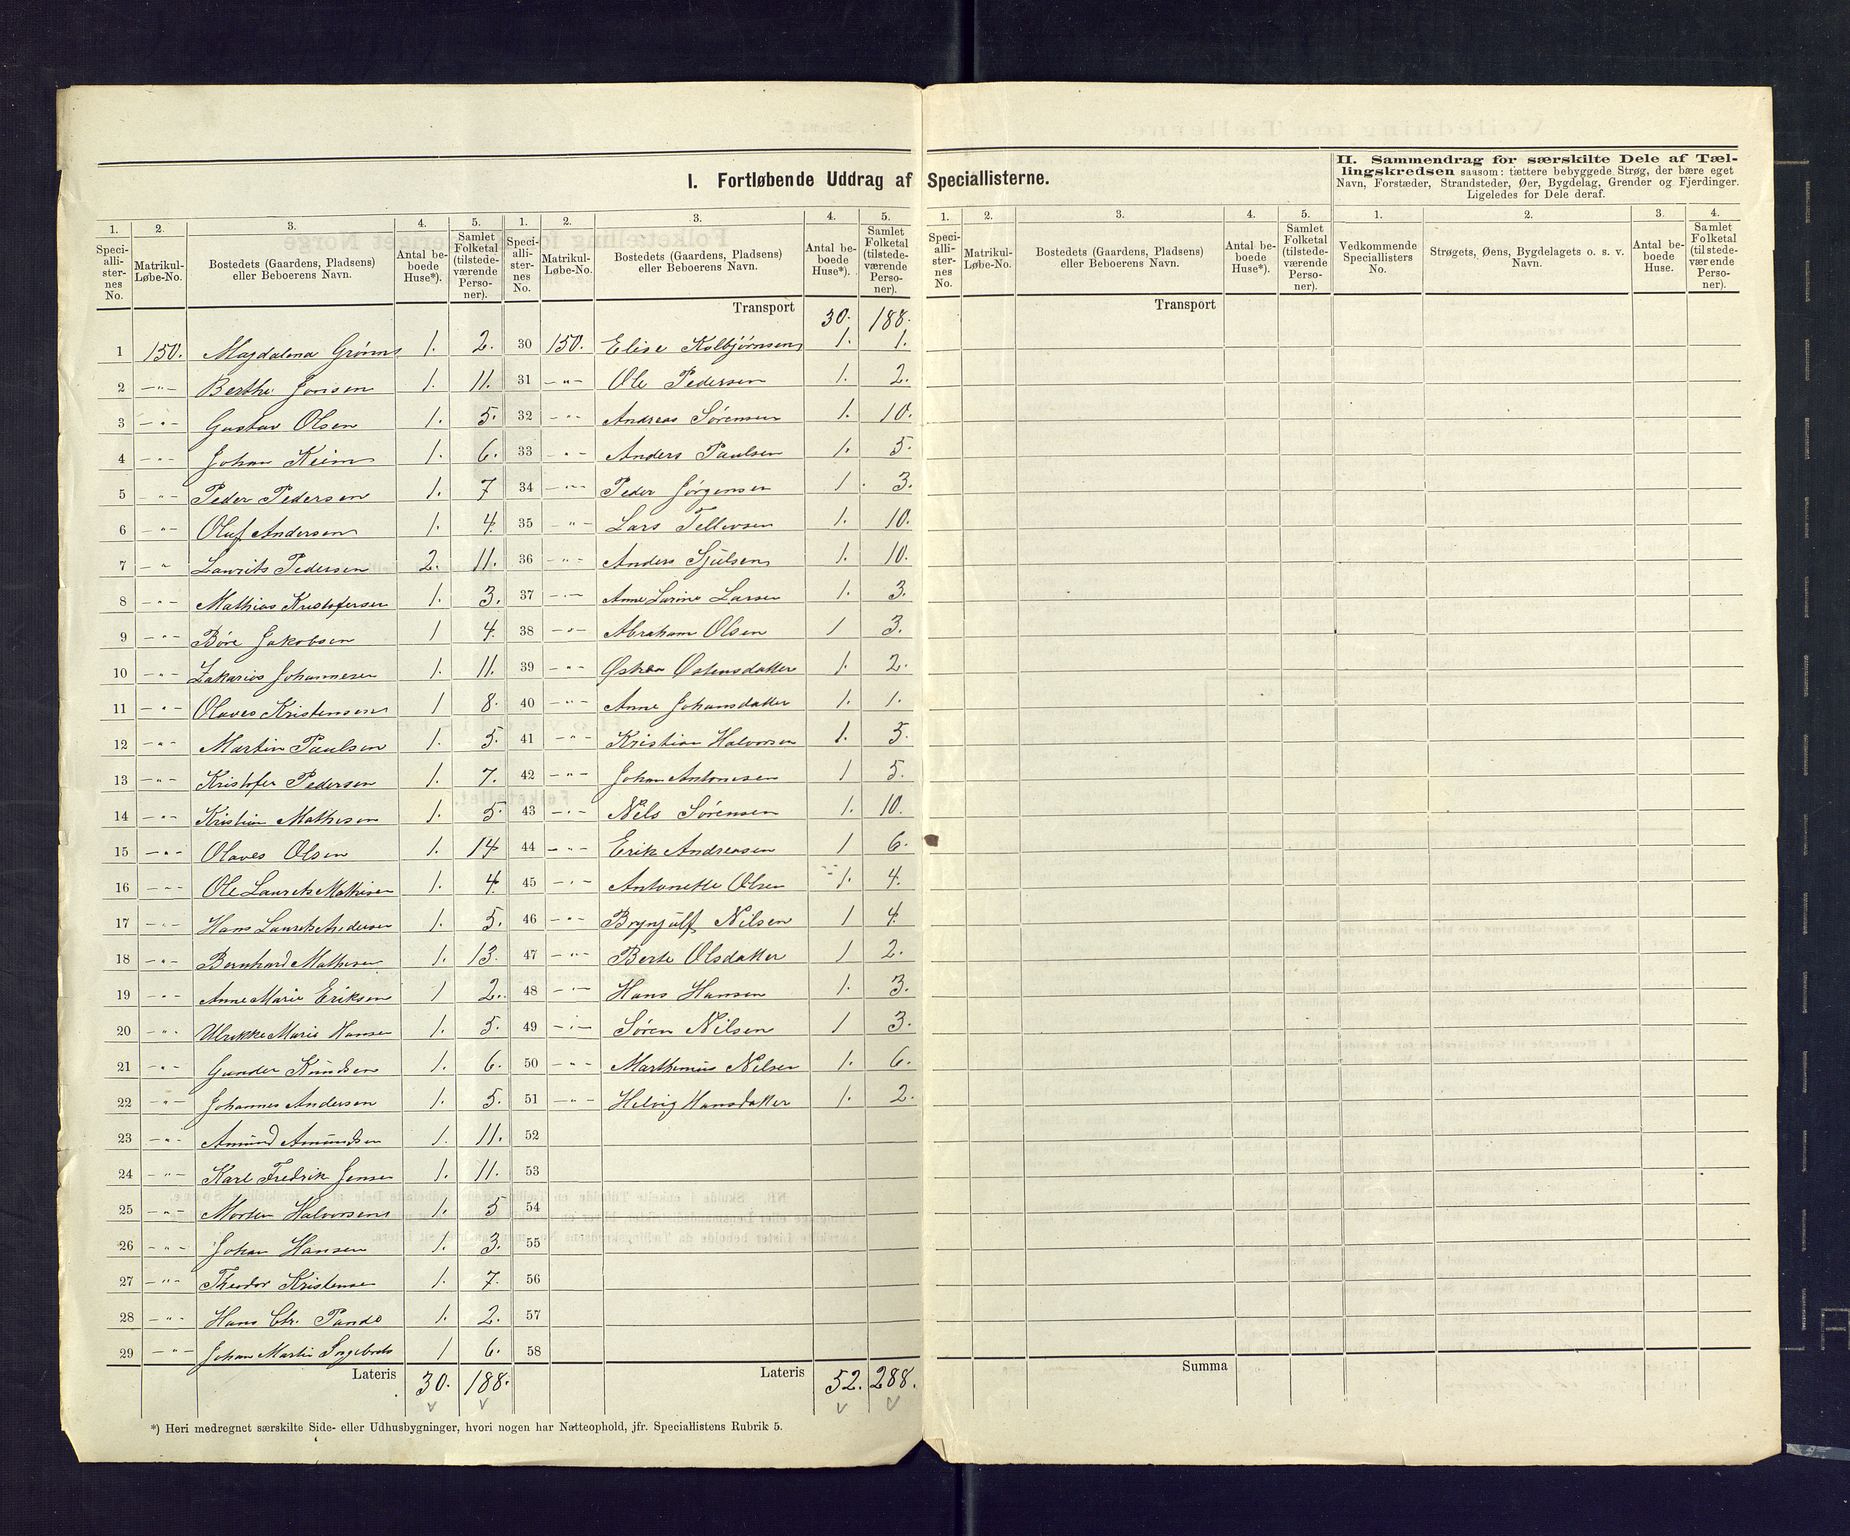 I. Fortløbende Uddrag af Speciallisterne.
II. Sammendrag for særskilte Dele af Tællingskredsen saasom: tættere bebyggede Strøg, der bære eget Navn, Forstæder, Strandsteder, Øer, Bygdelag, Grender og Fjerdinger. Ligeledes for Dele deraf.
1. 2. 3. 4. 5. 1. 2. 3. 4. 5. 1. 2. 3. 4. 5. 1. 2. 3. 4.
Speciallisternes No. Matrikul-Løbe-No. Bostedets (Gaardens, Pladsens) eller Beboerens Navn. Antal beboede Huse*). Samlet Folketal (tilstedeværende Personer).
Speciallisternes No. Matrikul-Løbe-No. Bostedets (Gaardens, Pladsens) eller Beboerens Navn. Antal beboede Huse*). Samlet Folketal (tilstedeværende Personer).
Speciallisternes No. Matrikul-Løbe-No. Bostedets (Gaardens, Pladsens) eller Beboerens Navn. Antal beboede Huse*). Samlet Folketal (tilstedeværende Personer).
Vedkommende Speciallisters No. Strøgets, Øens, Bygdelagets o. s. v. Navn. Antal beboede Huse. Samlet Folketal (tilstedeværende Personer).
1 150. Majdalena 1. 2.
2 -"- Berthe Jonsen 1. 11.
3 -"- Gustav Olsen 1. 5.
4 -"- Johan Keim 1. 6.
5 -"- Peder Pedersen 1. 7
6 -"- Oluf Andersen 1. 4.
7 -"- Laurits Pedersen 2. 11.
8 -"- Mathias Kristofersen 1. 3.
9 -"- Børe Jakobsen 1 4.
10 -"- Zakarias Johannesen 1. 11.
11 -"- Olaves Kristensen 1 8.
12 -"- Martin Paulsen 1. 5.
13 -"- Kristofer Pedersen 1. 7.
14 -"- Kristian Mathisen 1. 5.
15 -"- Olaves Olsen 1. 14
16 -"- Ole Laurits Mathisen 1. 4.
17 -"- Hans Laurits Andersen 1. 5.
18 -"- Bernhard Mathisen 1. 13.
19 -"- Anne Marie Eriksen 1 2.
20 -"- Ulrikke Marie Hansen 1. 5.
21 -"- Gunder Knudsen 1. 6.
22 -"- Johannes Andersen 1. 5.
23 -"- Amund Amundsen 1. 11.
24 -"- Karl Fredrik Jensen 1. 11.
25 -"- Morten Halvorsen 1. 5
26 -"- Johan Hansen 1. 3.
27 -"- Theodor Kristensen 1. 7.
28 -"- Hans Chr. Pande 1. 2.
29 -"- Johan Martin 1 6.
Lateris 30. 188.
Transport 30. 188.
30 150. Elise Kolbjørnsen 1. 1.
31 -"- Ole Pedersen 1. 2.
32 -"- Andreas Sørensen 1. 10.
33 -"- Anders Paulsen 1. 5.
34 -"- Peder Jørgensen 1. 3.
35 -"- Lars Tellevsen 1. 10.
36 -"- Anders 1. 10.
37 -"- Anne Larine Larsen 1. 3.
38 -"- Abraham Olsen 1 3.
39 -"- Østensdatter 1. 2.
40 -"- Anne Johansdatter 1. 1.
41 -"- Kristian Halvorsen 1. 5.
42 -"- Johan Antonesen 1 5.
43 -"- Nils Sørensen 1. 10.
44 -"- Erik Andreasen 1 6.
45 -"- Antonette Olsen 1. 4.
46 -"- Brynjulf Nilsen 1 4.
47 -"- Berte Olsdatter 1 2.
48 -"- Hans Hansen 1. 3.
49 -"- Søren Nilsen 1 3.
50 -"- Marthinius Nilsen 1. 6.
51 -"- Helvig Hansdatter 1. 2.
52
53
54
55
56
57
58
Lateris 52. 288.
Transport
Summa
*) Heri medregnet særskilte Side- eller Udhusbygninger, hvori nogen har Natteophold, jfr. Speciallistens Rubrik 5.